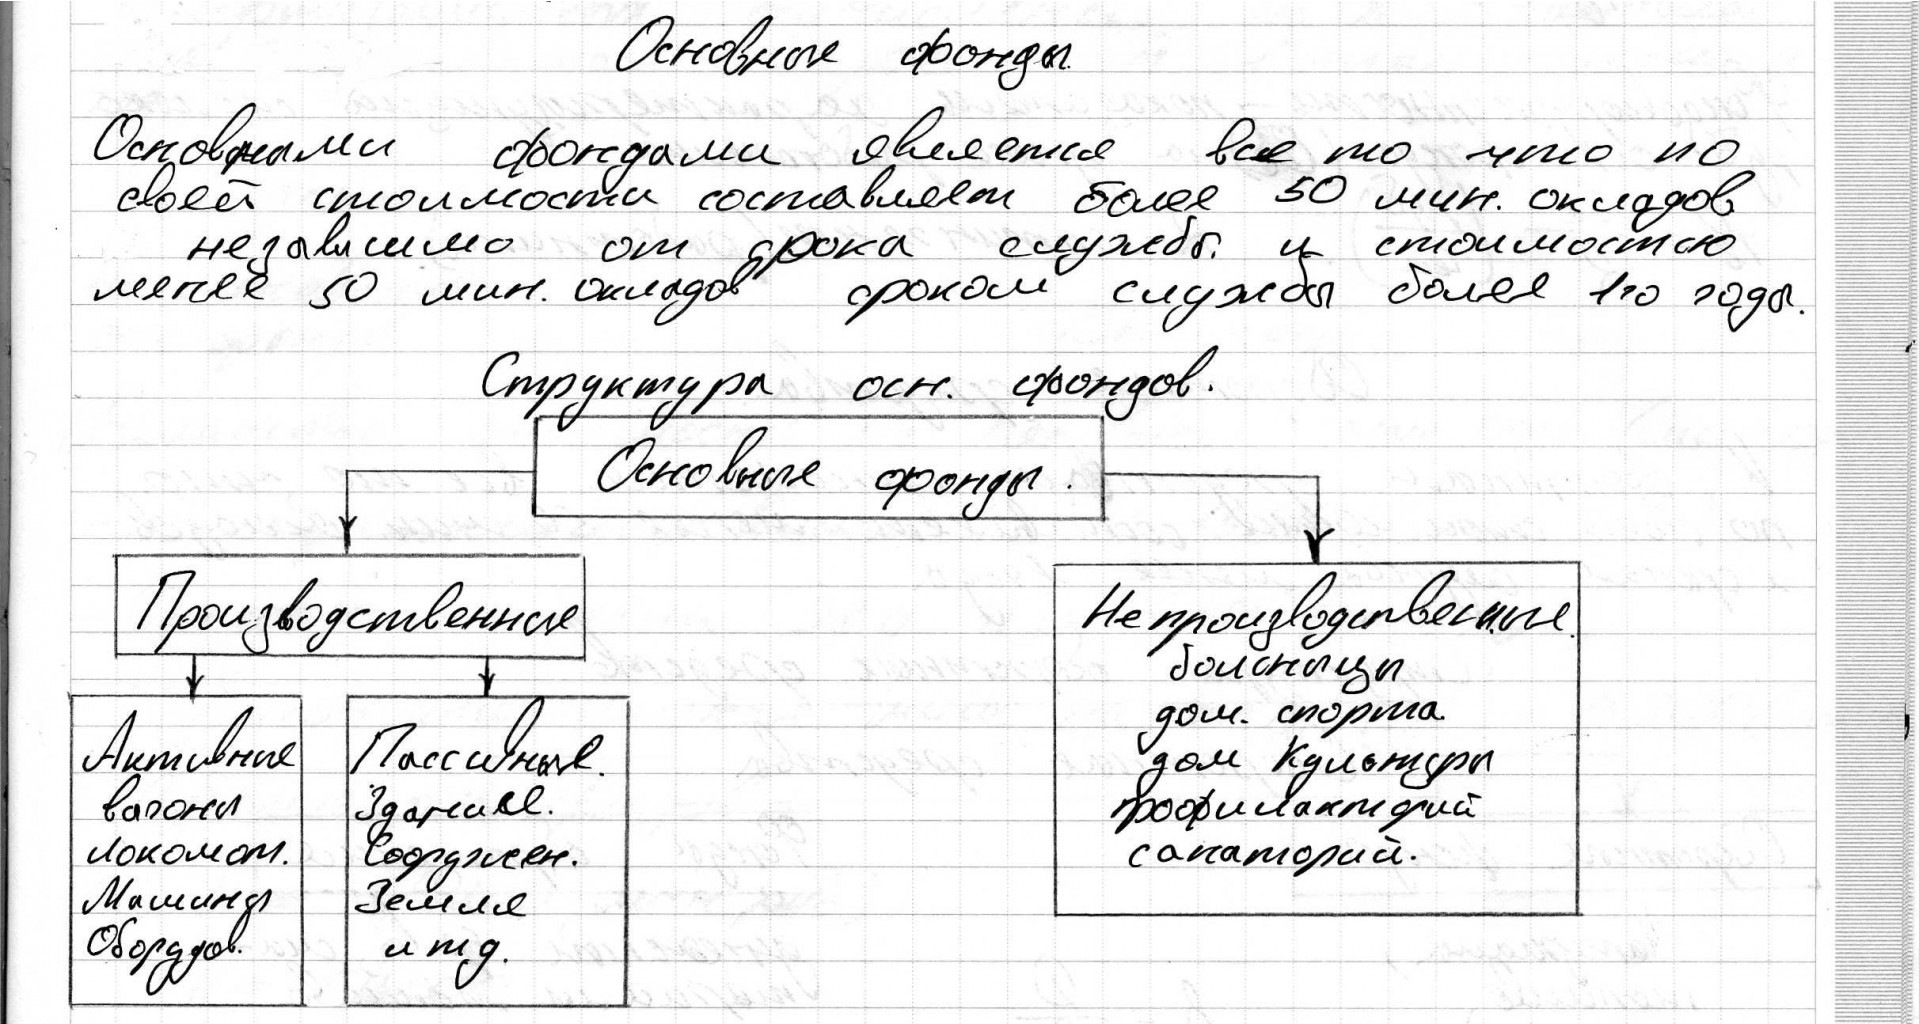 Основные фонды.
Основными фондами является все то что по
своей стоимости составляет более 50 мин. окладов
независимо от срока службы и стоимостью
менее 50 мин. окладов сроком службы более 1го годы.
Структура осн. фондов.
Основные фонды.
Производственные
Непроизводственные.
больницы
дом. спорта
дом Культуры
профилакторий
санаторий.
Активные
вагоны
локомот.
Машины
Оборудов.
Пассивные.
Здание.
Сооружен.
Земля
и т д.